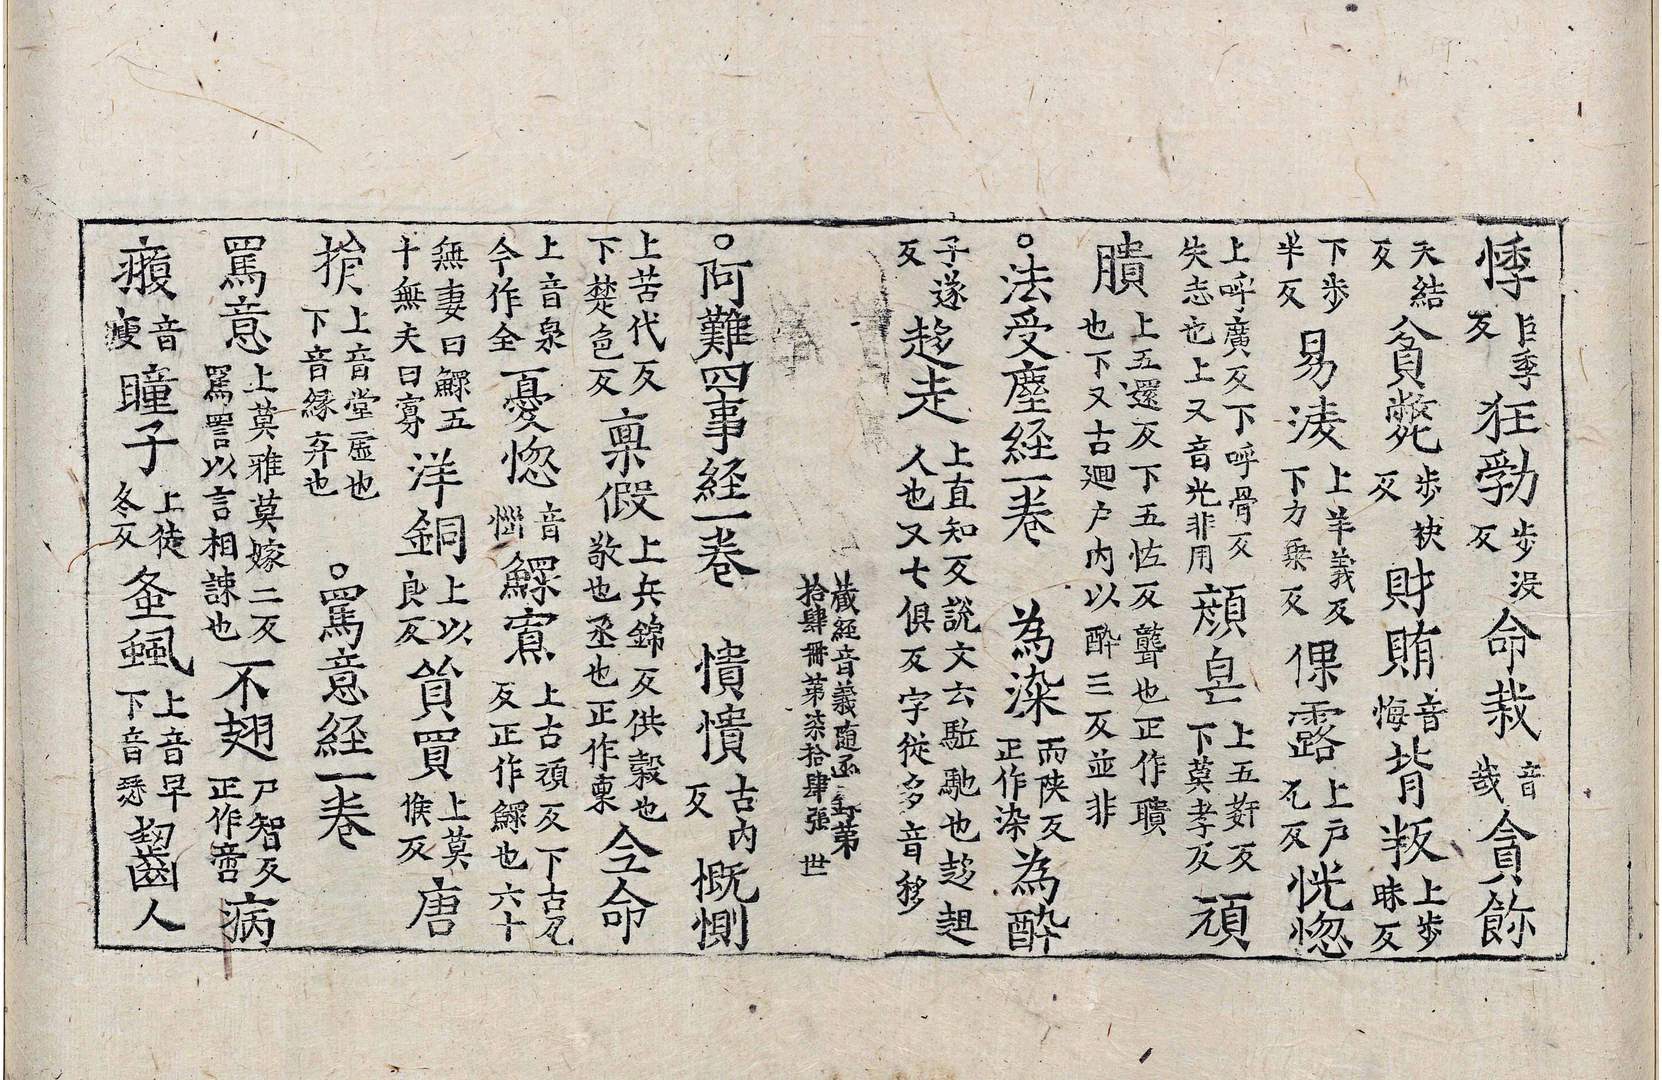 悸巨季反狂勃步没反命栽音哉貪餘
天結反貧斃步袂反財賄音悔背叛上步昧反
下步半反易淩上羊義反下力乗反倮露上户瓦反恍惚
上呼廣反下呼骨反失志也上又音光非用頑皃上五葪反下莫孝反頑
膭上五還反下五恠反聾也正作聵也下又古廻户内以酔三反並非
○法受塵経一卷 為染而陝反正作染為酔
子遂反趍走上直知反説文云駈馳也趍趄人也又七俱反字従多音移
藏経音義随函録第
拾肆冊第柒拾肆張 世
○阿難四事経一卷 憒憒古内反慨惻
上苦代反下楚色反稟假上兵錦反供穀也敬也丞也正作稟全命
上音泉今作全憂惚音惱鰥寡上古頑反下古瓦反正作鰥也六十
無妻曰鰥五十無夫曰寡洋銅上以良反貿買上莫候反唐
捐上音堂虚也下音縁弃也 ○罵意経一卷
罵意上莫雅莫嫁二反罵詈以言相諫也不翅尸智反正作啻病
瘦音瘦瞳子上徒冬反蚤蝨上音早下音瑟齧人